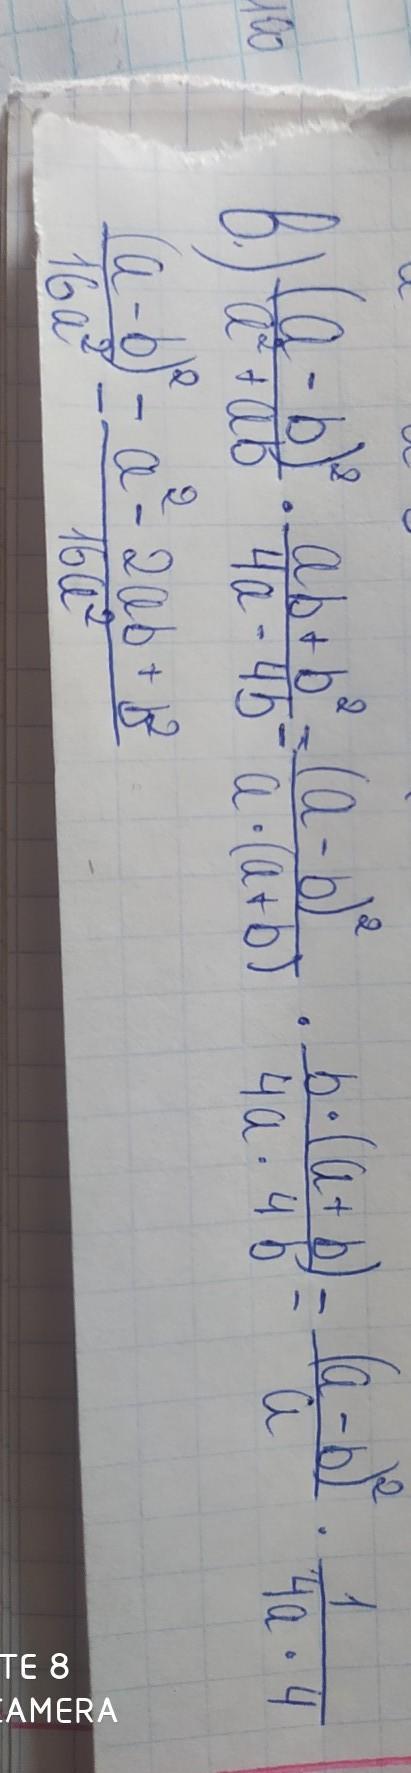 100
в.) (a - b)² / a² + ab · ab + b² / 4a - 4b = (a - b)² / a · (a + b) · b · (a + b) / 4a · 4b = (a - b)² / a · 1 / 4a · 4
(a - b)² / 16a² = a² - 2ab + b² / 16a²
TE 8
CAMERA